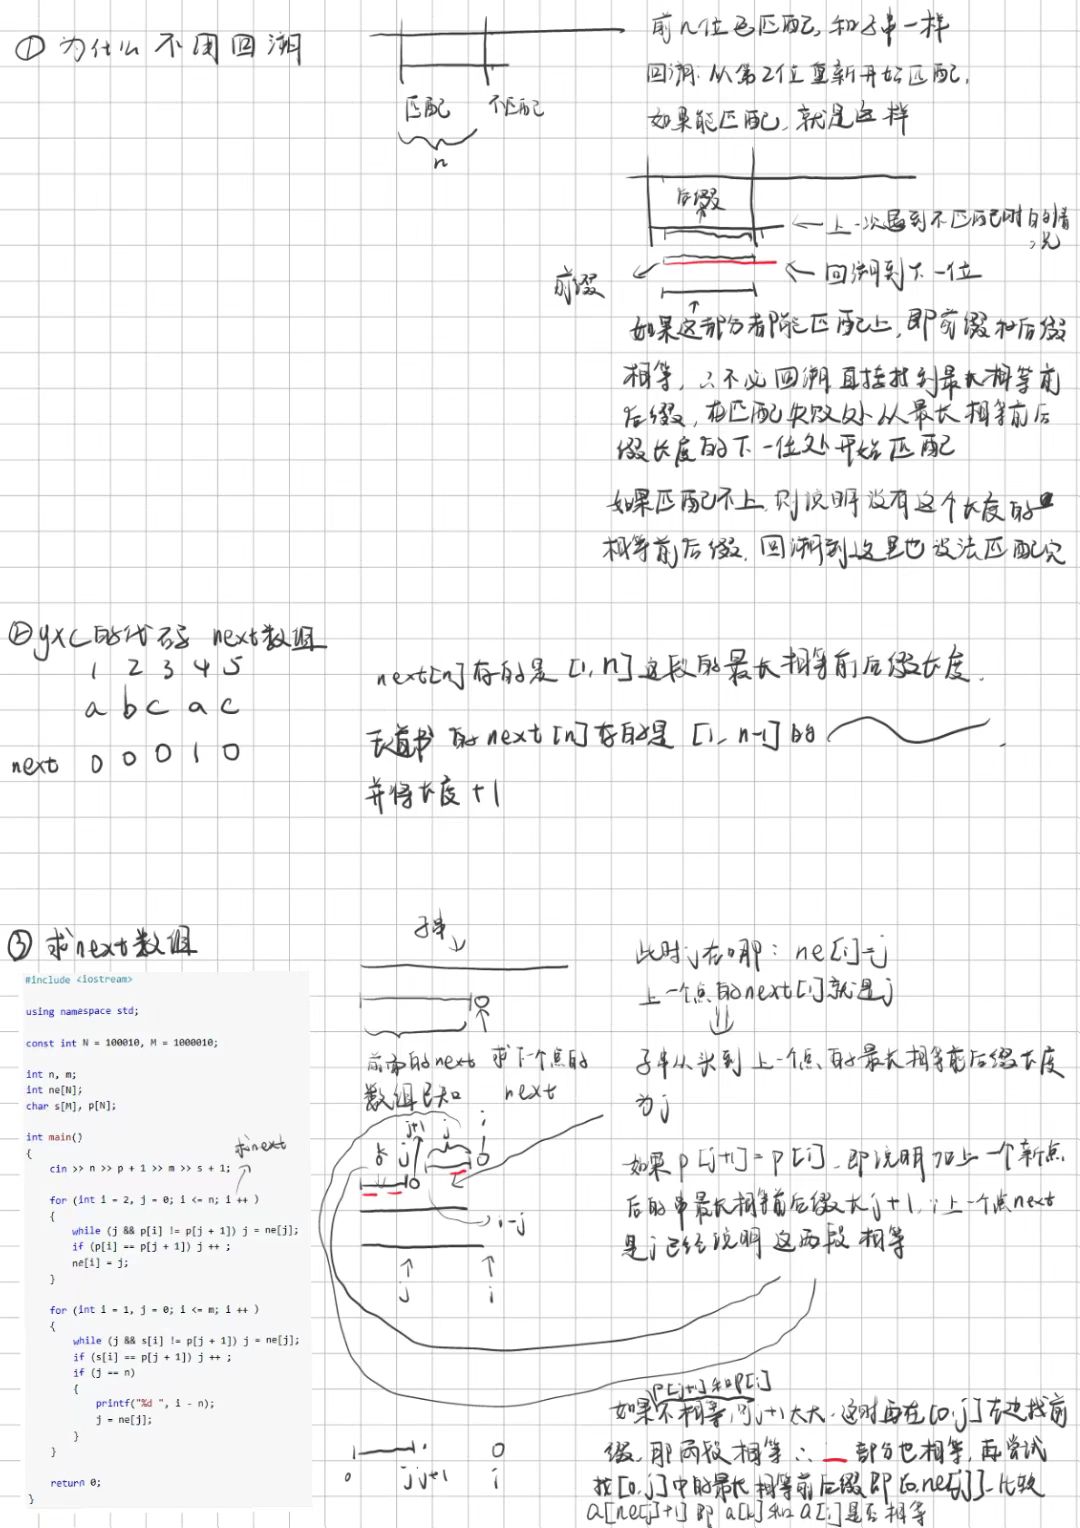 ① 为什么不用回溯
匹配 不匹配
n
前n位已匹配,和子串一样
回溯:从第2位重新开始匹配,
如果能匹配,就是这样
后缀
←上一次遇到不匹配时的情况
前缀
←回溯到下一位
如果这部分都能匹配上,即前缀和后缀
相等,∴不必回溯直接找到最长相等前
后缀,在匹配失败处从最长相等前后
缀长度的下一位处开始匹配
如果匹配不上,则说明没有这个长度的
相等前后缀,回溯到这里也没法匹配完
② yxc的代码 next数组
1 2 3 4 5
a b c a c
next 0 0 0 1 0
next[n]存的是[1,n]这段的最长相等前后缀长度.
的next[n]存的是[1,n-1]的
并将长度+1
③ 求next数组
#include <iostream>
using namespace std;
const int N = 100010, M = 1000010;
int n, m;
int ne[N];
char s[M], p[N];
int main()
{
求next
cin >> n >> p + 1 >> m >> s + 1;
for (int i = 2, j = 0; i <= n; i ++ )
{
while (j && p[i] != p[j + 1]) j = ne[j];
if (p[i] == p[j + 1]) j ++ ;
ne[i] = j;
}
for (int i = 1, j = 0; i <= m; i ++ )
{
while (j && s[i] != p[j + 1]) j = ne[j];
if (s[i] == p[j + 1]) j ++ ;
if (j == n)
{
printf("%d ", i - n);
j = ne[j];
}
}
return 0;
}
子串
前面的next
数组已知
求下一个点的
next
j+1 j i
k j
i-j
j i
0 j j+1 i
此时j在哪: ne[i]=j
上一个点的next[i]就是j
子串从头到上一个点的最长相等前后缀长度
为j
如果p[j+1]=p[i],即说明加上一个新点
后的串最长相等前后缀长j+1,∵上一个点next
是j已经说明这两段相等
p[j+1]和p[i]
如果不相等,则j+1太大,这时再在[0,j]左边找前
缀,那两段相等∴ 部分也相等,再尝试
找[0,j]中的最长相等前后缀即[0,ne[j]],比较
a[ne[j]+1]即a[k]和a[i]是否相等